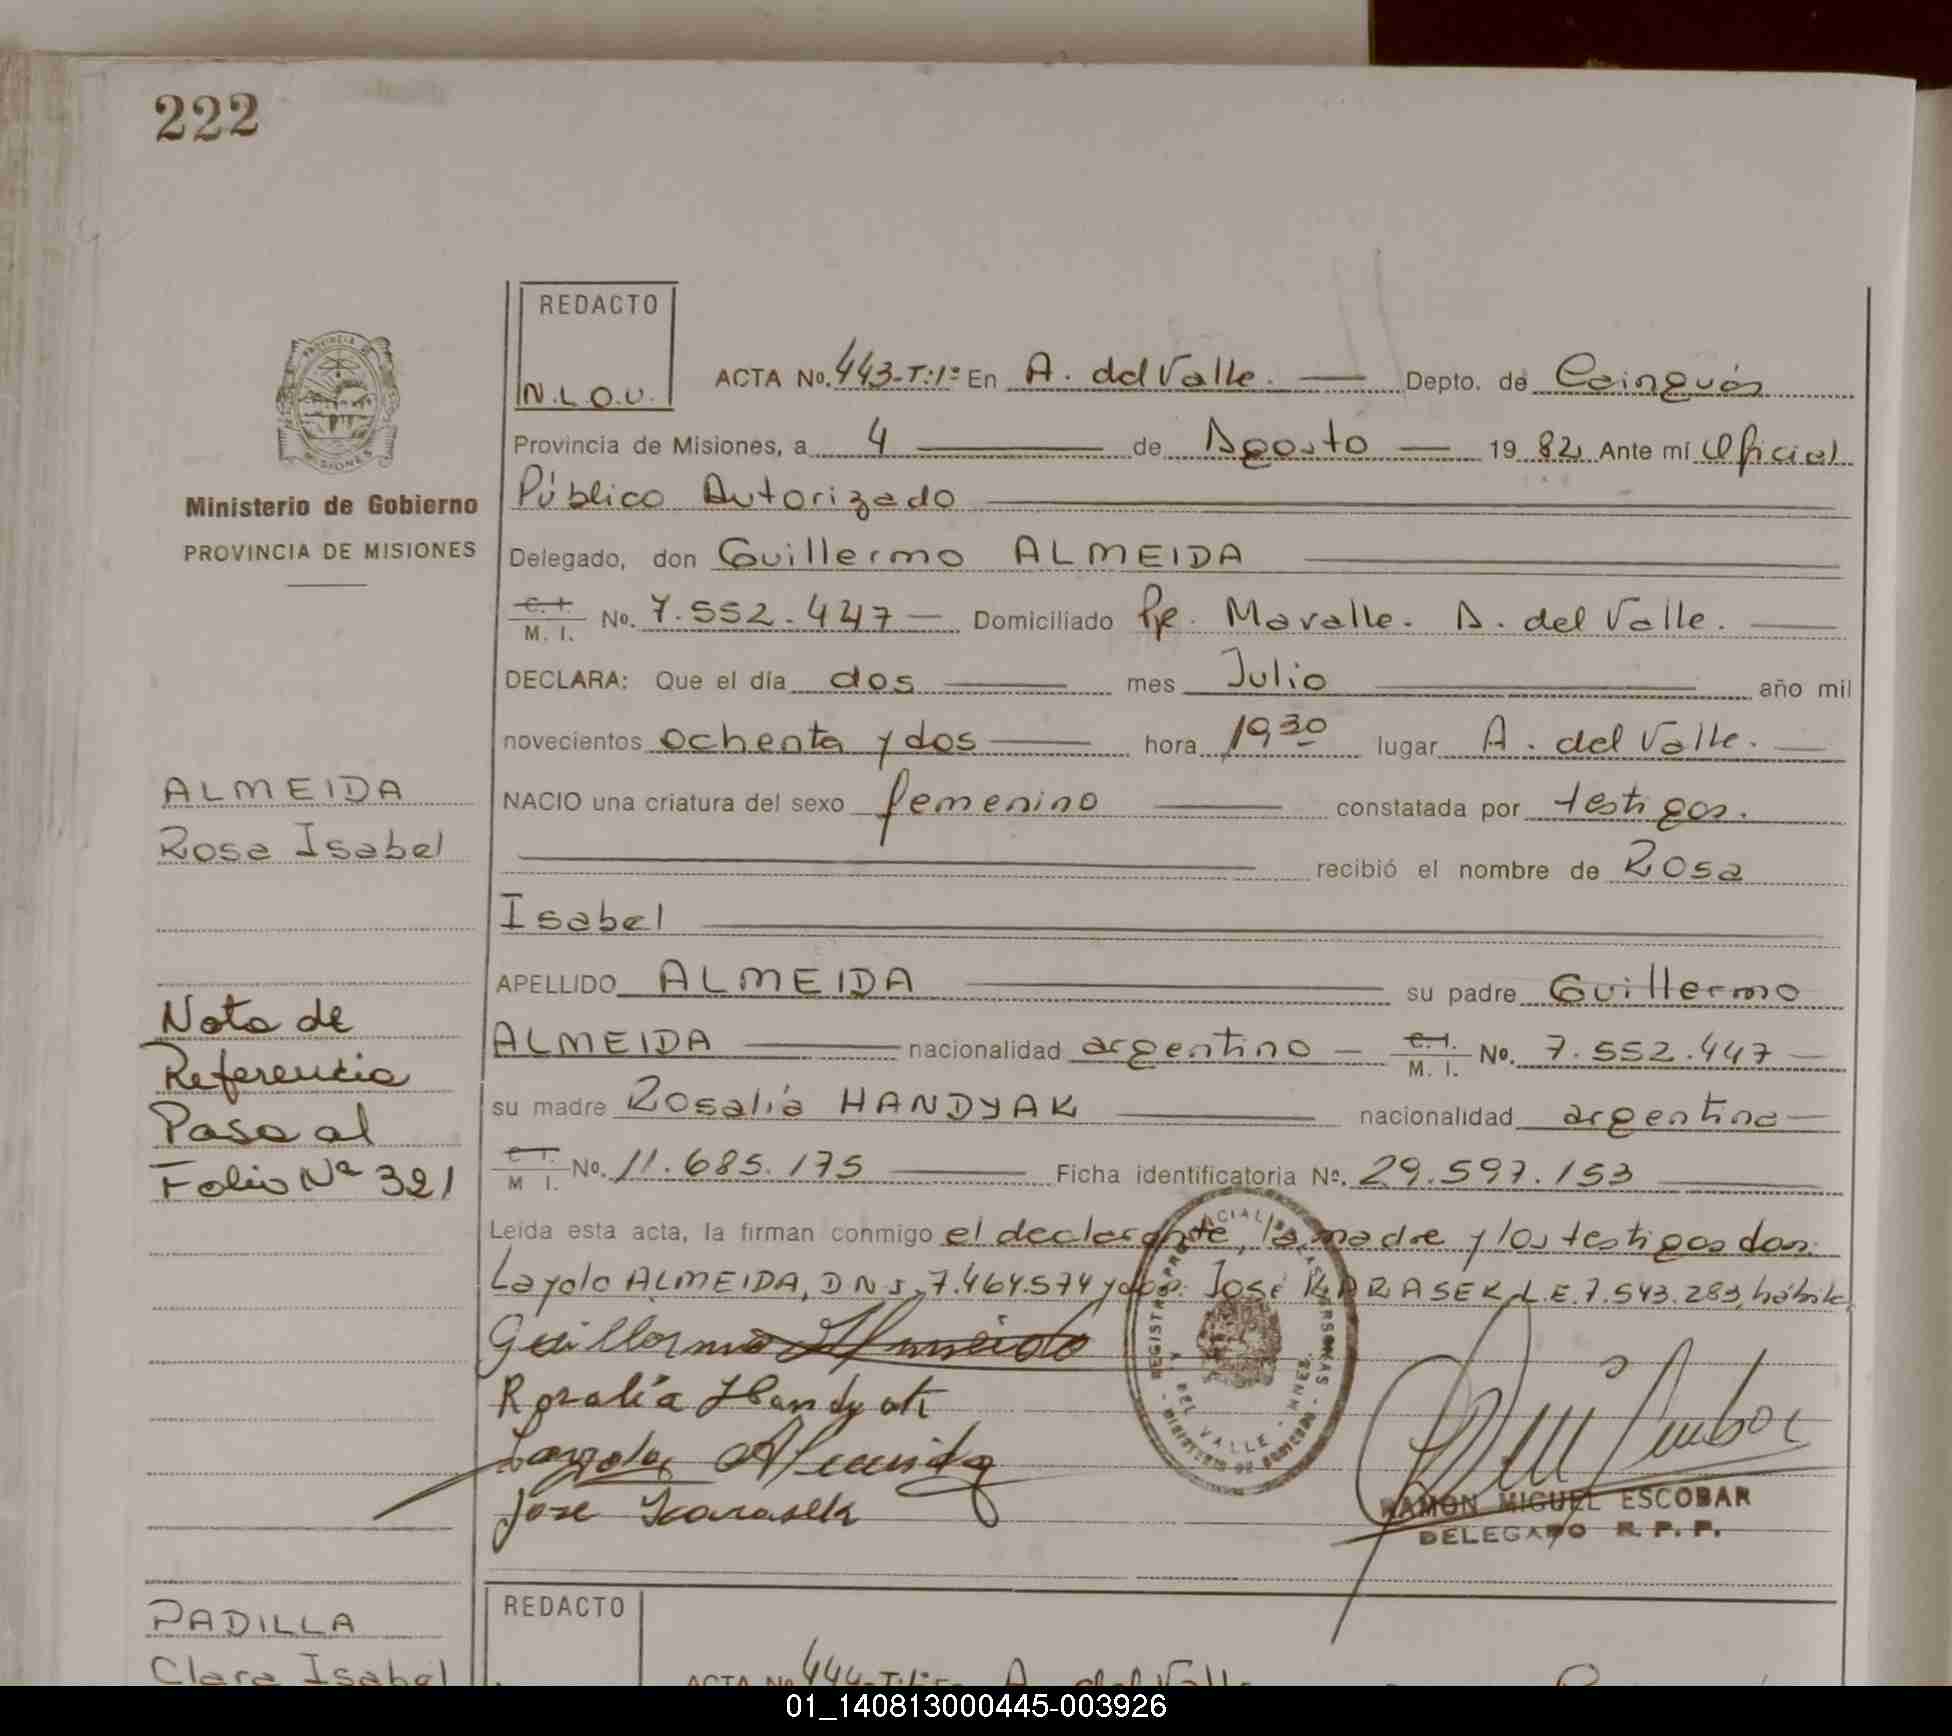 222
REDACTO
N.L.O.U.
ACTA No. 443-T:1º En A. del Valle. Depto. de Cainguás
Provincia de Misiones, a 4 de Agosto 1982 Ante mí Oficial
Público Autorizado
Delegado, don Guillermo ALMEIDA
C. I. M. I. No. 7.552.447 Domiciliado Pje. Mavalle. A. del Valle.
DECLARA: Que el día dos mes Julio año mil
novecientos ochenta y dos hora 19,30 lugar A. del Valle.
NACIO una criatura del sexo femenino constatada por testigos.
recibió el nombre de Rosa
Isabel
APELLIDO ALMEIDA su padre Guillermo
ALMEIDA nacionalidad argentino C. I. M. I. No. 7.552.447
su madre Rosalía HANDYAK nacionalidad argentina
C. I. M. I. No. 11.685.175 Ficha identificatoria No. 29.597.153
Leida esta acta, la firman conmigo el declarante, la madre y los testigos don:
Layolo ALMEIDA, D N I. 7.464.574 y don: José KARASEK L.E. 7.543.283, hábiles
Guillermo Almeida
Rosalía Handyak
Layolo Almeida
Jose Karasek
RAMON MIGUEL ESCOBAR
DELEGADO R. P. P.
PROVINCIA DE
MISIONES
Ministerio de Gobierno
PROVINCIA DE MISIONES
ALMEIDA
Rosa Isabel
Nota de
Referencia
Pasa al
Folio Nº 321
PADILLA
Clara Isabel
REDACTO
ACTA No. 444-T:1º En A. del Valle
01_140813000445-003926